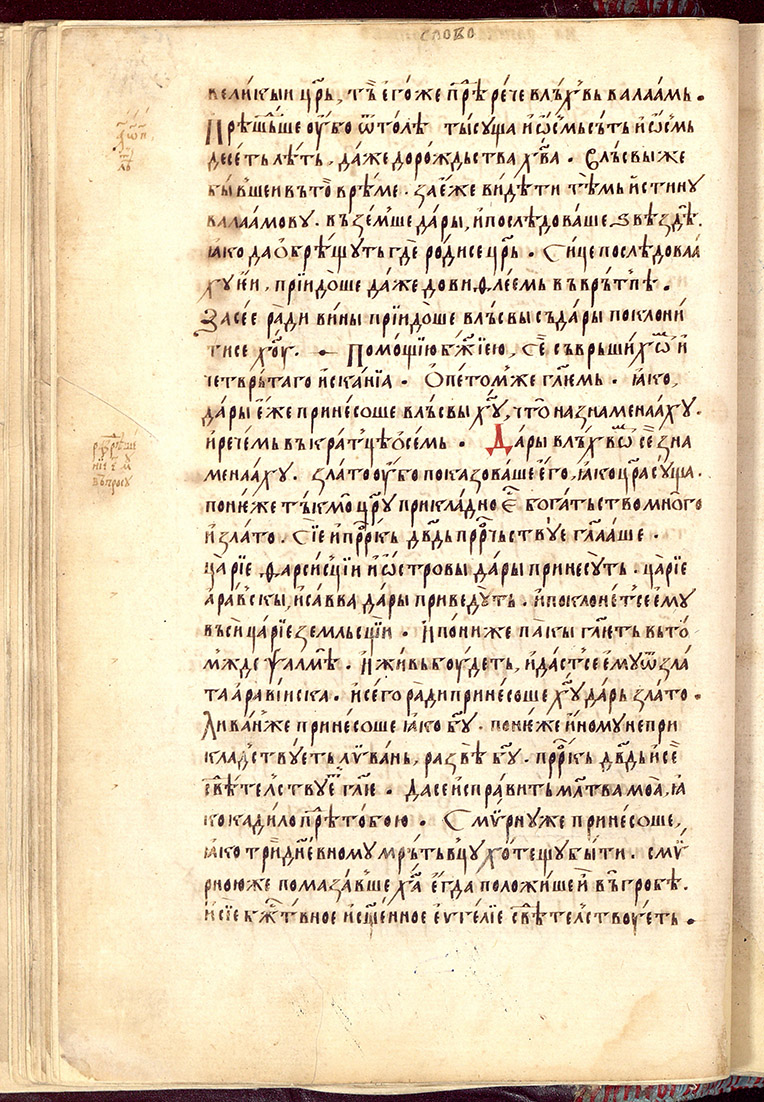 слово
великыи цр҃ь, тъ̏ его́же прⷤѣ рече влъ́хвь валаамь ·
Прѣшⷣьше ѹ҆́бо ѿто́лѣ ты́сѹща и҆ ѡ҆́смьсть и҆ ѡ҆́смь
десе́ть лѣ́ть, да́же до ро́ждьства хв҃а · Влъ́свы же
бы́вшеи въ то̏ врѣ́ме · за є҆́же ви́дѣти тѣ́мь и҆стинꙋ
валаамовꙋ · въземше да́ры, и҆ послѣ́доваше ѕвѣздѣ̏ ·
ꙗ҆ко да ѡ҆брѣ́щꙋть где ро́дисе цр҃ь · Си́це послѣ́довав
хꙋ и҆́и, прїидо̀ше да́же до виѳлее́мь въ врьтпѣ̏ ·
За се́е ра̀ди ви́ны прїидо̀ше влъ́свы съ да́ры поклони
тисе хⷭ҇ꙋ · Помо́щїю бж҃їею, сѐ съврьши́хѡⷨ и҆
четврь́таго и҆ска́нїа · Ѻ҆пе́т мⷤже гл҃емь · ꙗ҆ко,
да́ры є҆́же прине́соше влъ́свы хⷭ҇ꙋ, что̀ назнаменаахꙋ ·
и҆ рече́мь въкра́тцѣ ѻ҆ се́мь · Да́ры влъхвѡⷡ сѐ зна
менаахꙋ · злато ѹ҆́бо показова́ше є҆го̀, ꙗ҆ко цр҃а сꙋща ·
поне́же тъ́кмо цр҃ꙋ прикла́дно єⷭ҇ бога́тьство мно́го
и҆ зла́то · Сїе и҆ пррⷪ҇кь дв҃дь пррⷪ҇чьствꙋе гл҃ааше ·
ца̀рїе ѳарси́сцїи и҆ ѡ҆́стровы да́ры принесꙋть · ца̀рїе
а҆ра́вьскы, и҆ са́вва да́ры приведꙋть · и҆ покло́нетсе є҆мꙋ
въсѝ ца̀рїе земльсцїи · И҆ по́ниже па̀кы гл҃ють вь то́
мⷤжде ѱалмѣ̏ · И҆ жи́вь бѹдеть, и҆ да́стсе є҆мꙋ ѿ зла
та а҆рави́нска · и҆ сего ра́ди прине́соше хⷭ҇ꙋ да́рь зла́то ·
Лива́нⷤже прине́соше ꙗ҆ко бг҃ꙋ · поне́же и҆́номꙋ непри
кла́дствꙋеть лѷва́нь, ра́звѣ бг҃ꙋ · пррⷪ҇кь дв҃дь и҆ се̏
свѣ́телствꙋеⷮ гл҃ю · Да се и҆спра́вить млт҃ва моа̀, ꙗ҆
ко кади́ло прⷣѣ тобо́ю · Смѵ́рнꙋ же прине́соше,
ꙗ҆ко трїдне́вномꙋ мрь́тьвцꙋ хо́тещꙋ бы́ти · смѵ̈́
рною же помаза́вше хⷭ҇а є҆гда положи́ше и҆̀ въ гробѣ ·
и҆ сїе бжⷭ҇твное и҆ сщ҃енное є҆ѵгелїе свѣ́телствѹеть ·